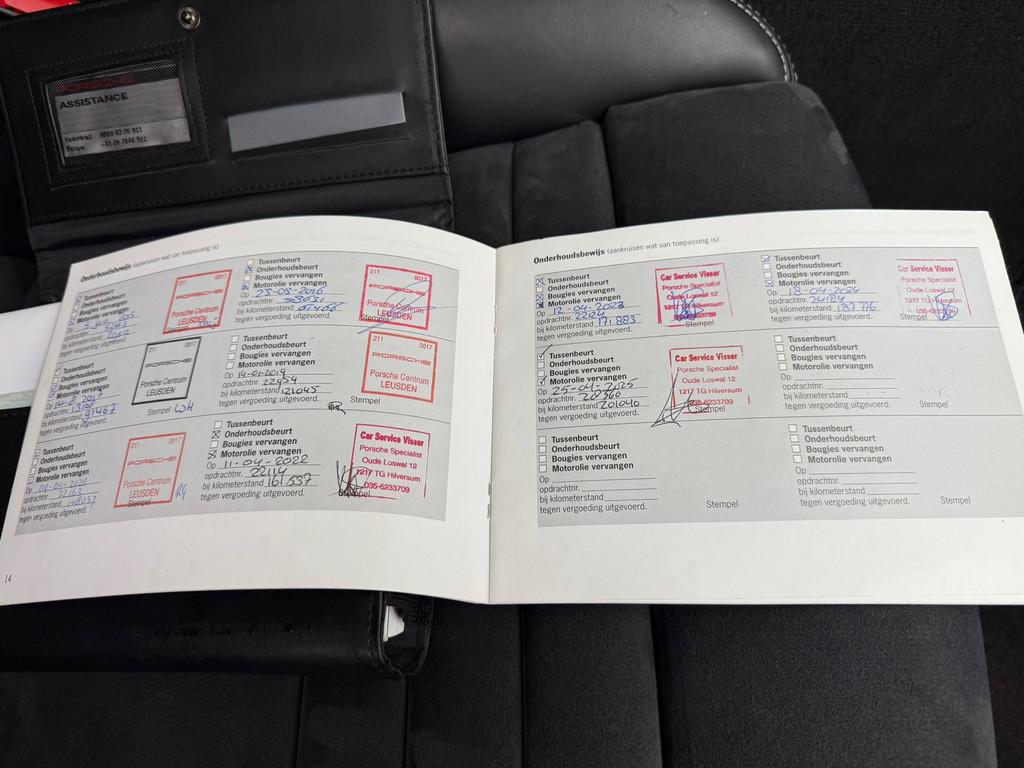 PORSCHE
ASSISTANCE
Onderhoudsbewijs (aankruisen wat van toepassing is)
Tussenbeurt
Onderhoudsbeurt
Bougies vervangen
Motorolie vervangen
Op
opdrachtnr.
bij kilometerstand
tegen vergoeding uitgevoerd.
211 0017
PORSCHE
Porsche Centrum
LEUSDEN
Tussenbeurt
Onderhoudsbeurt
Bougies vervangen
Motorolie vervangen
Op 23-05-2016
opdrachtnr.
bij kilometerstand
tegen vergoeding uitgevoerd.
211 0017
PORSCHE
Porsche Centrum
LEUSDEN
Stempel
Tussenbeurt
Onderhoudsbeurt
Bougies vervangen
Motorolie vervangen
Op
opdrachtnr.
bij kilometerstand 91467
tegen vergoeding uitgevoerd.
211 0017
PORSCHE
Porsche Centrum
LEUSDEN
Stempel
Tussenbeurt
Onderhoudsbeurt
Bougies vervangen
Motorolie vervangen
Op
opdrachtnr. 22954
bij kilometerstand 121045
tegen vergoeding uitgevoerd.
211 0017
PORSCHE
Porsche Centrum
LEUSDEN
Stempel
Tussenbeurt
Onderhoudsbeurt
Bougies vervangen
Motorolie vervangen
Op
opdrachtnr.
bij kilometerstand
tegen vergoeding uitgevoerd.
211 0017
PORSCHE
Porsche Centrum
LEUSDEN
Stempel
Tussenbeurt
Onderhoudsbeurt
Bougies vervangen
Motorolie vervangen
Op 11-04-2022
opdrachtnr. 22114
bij kilometerstand 161.557
tegen vergoeding uitgevoerd.
Car Service Visser
Porsche Specialist
Oude Loswal 12
1217 TG Hilversum
035-6233709
Stempel
14
Onderhoudsbewijs (aankruisen wat van toepassing is)
Tussenbeurt
Onderhoudsbeurt
Bougies vervangen
Motorolie vervangen
Op 12-04-2023
opdrachtnr. 22124
bij kilometerstand 171.883
tegen vergoeding uitgevoerd.
Car Service Visser
Porsche Specialist
Oude Loswal 12
Stempel
Tussenbeurt
Onderhoudsbeurt
Bougies vervangen
Motorolie vervangen
Op 18-04-2024
opdrachtnr.
bij kilometerstand
tegen vergoeding uitgevoerd.
Car Service Visser
Porsche Specialist
Oude Loswal 12
1217 TG Hilversum
Stempel
Tussenbeurt
Onderhoudsbeurt
Bougies vervangen
Motorolie vervangen
Op 25-04-2025
opdrachtnr. 20360
bij kilometerstand 201040
tegen vergoeding uitgevoerd.
Car Service Visser
Porsche Specialist
Oude Loswal 12
1217 TG Hilversum
035-6233709
Stempel
Tussenbeurt
Onderhoudsbeurt
Bougies vervangen
Motorolie vervangen
Op
opdrachtnr.
bij kilometerstand
tegen vergoeding uitgevoerd.
Stempel
Tussenbeurt
Onderhoudsbeurt
Bougies vervangen
Motorolie vervangen
Op
opdrachtnr.
bij kilometerstand
tegen vergoeding uitgevoerd.
Stempel
Tussenbeurt
Onderhoudsbeurt
Bougies vervangen
Motorolie vervangen
Op
opdrachtnr.
bij kilometerstand
tegen vergoeding uitgevoerd.
Stempel